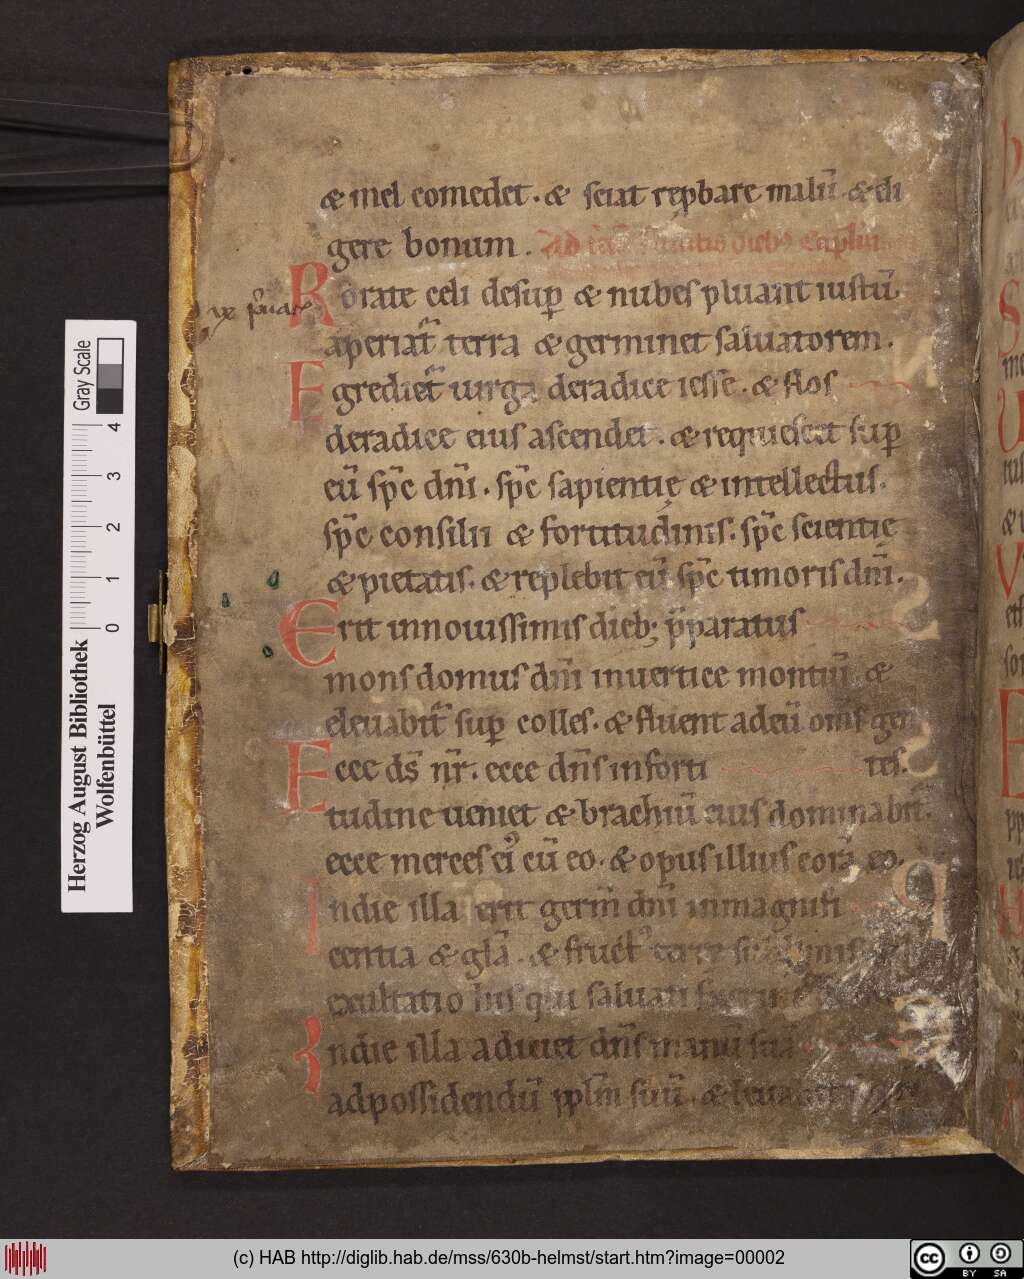 & mel comedet . & sciat rep̱bare malū . & eli
gere bonum . Ad
Rorate celi desup̱ & nubes pluant iustū .
aperiat᷑ terra & germinet saluatorem .
Egrediet᷑ uirga deradice iesse . & flos
deradice eius ascendet . & requiescet sup̱
eū sp̄c dn̄i . sp̄c sapientię & intellectus .
sp̄c consilii & fortitudinis . sp̄c scientię
& pietatis . & replebit eū sp̄c timoris dn̄i .
Erit innouissimis dieb; p̄paratus
mons domus dn̄i inuertice montiū &
eleuabit᷑ sup̱ colles . & fluent adeū om̄s gen
Ecce ds̄ nr̄ . ecce dn̄s inforti tes .
tudine ueniet & brachiū eius dominabit᷑ .
ecce merces ei᷒ cū eo . & opus illius corā eo .
Indie illa erit germ̄ dn̄i inmagnifi
centia & gl̄a . & fruct᷒ terrę sublimis
exultatio his qui saluati
Indie illa adiciet dn̄s manū suā
adpossidendū ppl̄m suū . & leuabit
Herzog August Bibliothek
Wolfenbüttel
Gray Scale
0 1 2 3 4
(c) HAB http://diglib.hab.de/mss/630b-helmst/start.htm?image=00002
cc BY SA